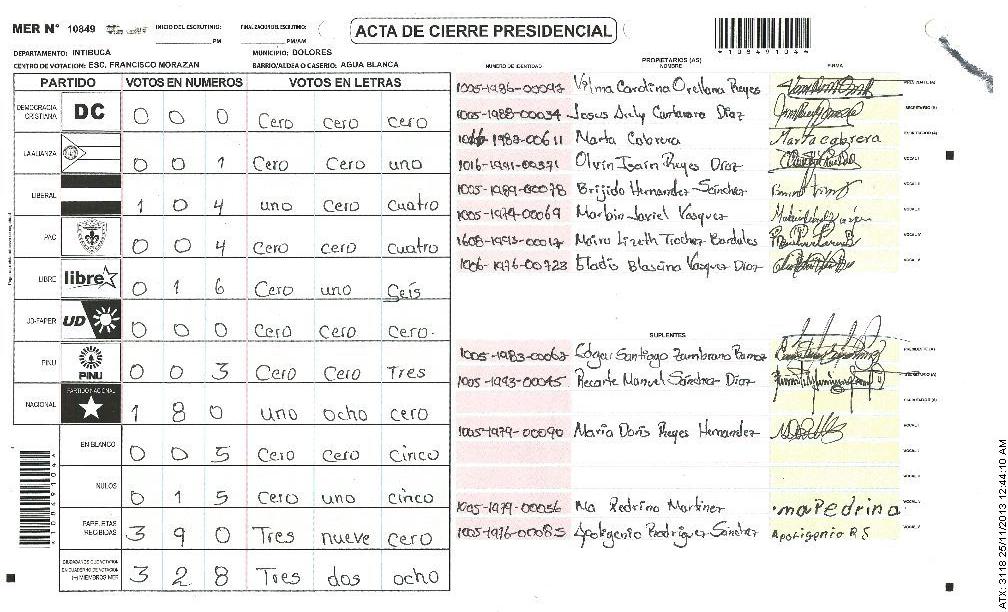 MER N° 10849 INICIO DEL ESCRUTINIO: FINALIZACION DEL ESCRUTINIO:
PM PM/AM
ACTA DE CIERRE PRESIDENCIAL
10849104
DEPARTAMENTO: INTIBUCA MUNICIPIO: DOLORES
CENTRO DE VOTACION: ESC. FRANCISCO MORAZAN BARRIO/ALDEA O CASERIO: AGUA BLANCA
PARTIDO VOTOS EN NUMEROS VOTOS EN LETRAS
DEMOCRACIA CRISTIANA DC 0 0 0 Cero cero cero
LA ALIANZA 0 0 1 Cero Cero uno
LIBERAL 1 0 4 uno Cero cuatro
PAC 0 0 4 Cero cero cuatro
LIBRE libre 0 1 6 Cero uno Seis
UD-FAPER UD 0 0 0 Cero Cero cero.
PINU PINU 0 0 3 Cero Cero Tres
NACIONAL PARTIDO NACIONAL 1 8 0 uno ocho cero
EN BLANCO 0 0 5 Cero Cero cinco
NULOS 0 1 5 Cero uno cinco
PAPELETAS RECIBIDAS 3 9 0 Tres nueve cero
3 2 8 Tres dos ocho
PROPIETARIOS (AS)
NUMERO DE IDENTIDAD NOMBRE FIRMA
1005-1986-00093 Vilma Carolina Orellana Reyes
1005-1988-00034 Díaz
1983-00611 Marta Cabrera Marta cabrera
1016-1991-00371 Olvin Isain Reyes Díaz
1005-1989-00078 Brijido Hernandez Sánchez
1005-1974-00069 Marbin Javiel Vasquez
1608-1993-00017 Maira Lizeth Trochez Bardales
1006-1976-00723 Gladis Blascina Vasquez Diaz
SUPLENTES
1005-1983-00062 Edgar Santiago Zambrano Ramos
1005-1993-00045 Recarte Manuel Sánchez Díaz
1005-1979-00090 María Doris Reyes Hernandez
1005-1979-00056 Ma Pedrina Martinez ma Pedrina
1005-1976-00085 Apoligenio Rodríguez Sánchez Apoligenio R S
ATX: 3118 25/11/2013 12:44:10 AM
10849104